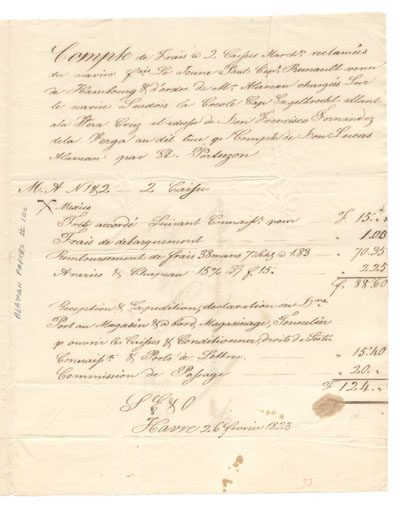 Compte de Frais à 2 Caisses March.es reclamées
du navire f.ais Le Jeune Paul Cap.e Renault venu
de Hambourg & d'ordre de M.r Alaman chargés Sur
le navire Suedois la Cecile Cap Engelbrecht, allant
a la Vera Cruz et adresse de Don Francisco Fernandez
de la Verga au dit lieu p Compte de Don Luccas
Alaman par
M. A N 1 & 2 – 2 Caisses
Mexico
Frêt accordé Suivant Connaiss.t pour f 15. "
Frais de debarquement " 1.00
Remboursement de frais 38 mars 7 à 183 " 70.35
Avaries & Chapeau 15% S/ f 15. " 2.25
f. 88.60
Reception & Expedition, declaration en
Port au Magasin & a bord, Magasinage, Tonnelier
p ouvrir les Caisses & Conditionner, droits de Sortie
Connaiss.t & Ports de Lettres " 15.40
Commission de Passage " 20. "
f 124. "
S E & O
Havre 26 fevrier 1823
ALAMAN PAPERS # 100